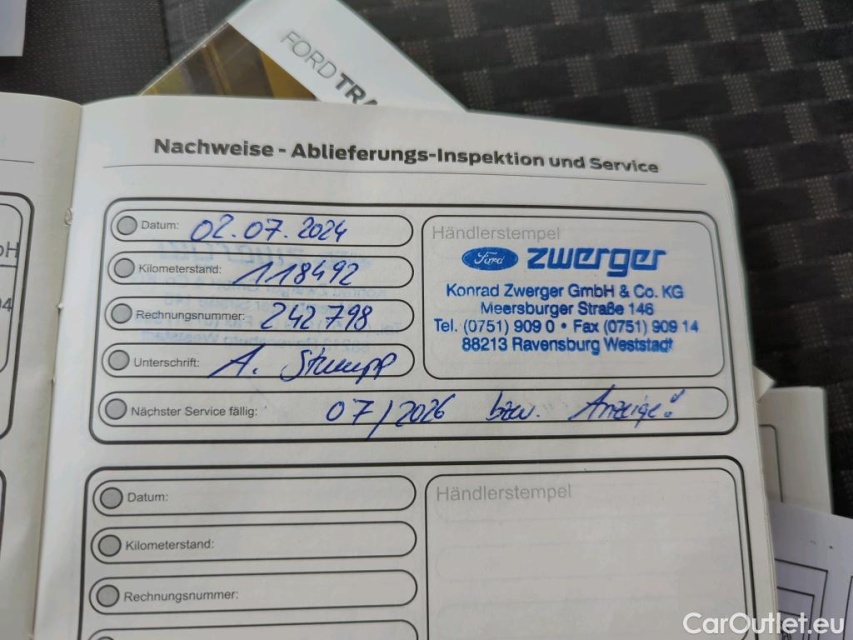 FORD TRA
Nachweise - Ablieferungs-Inspektion und Service
Datum: 02.07.2024
Kilometerstand: 118492
Rechnungsnummer: 242798
Unterschrift: A. Stumpp
Nächster Service fällig: 07/2026 bzw. Anzeige!
Händlerstempel
Ford zwerger
Konrad Zwerger GmbH & Co. KG
Meersburger Straße 146
Tel. (0751) 909 0 • Fax (0751) 909 14
88213 Ravensburg Weststadt
Datum:
Kilometerstand:
Rechnungsnummer:
Händlerstempel
CarOutlet.eu